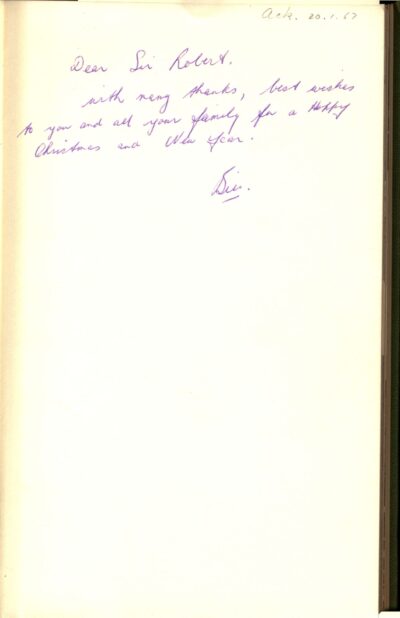 Ack. 20.1.67
Dear Sir Robert.
with many thanks, best wishes
to you and all your family for a Happy
Christmas and New Year.